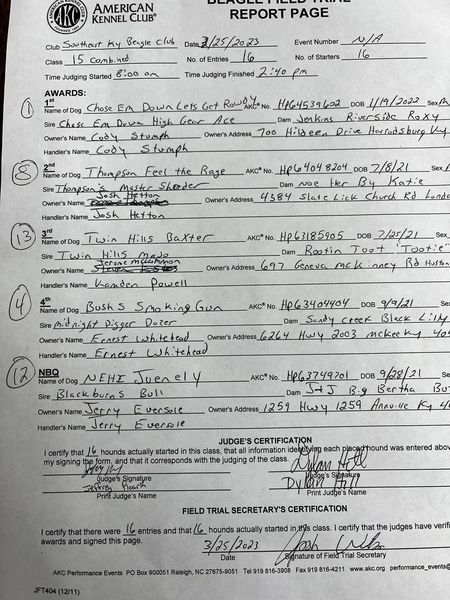 AMERICAN KENNEL CLUB®
BEAGLE FIELD TRIAL
REPORT PAGE
Club Southeast Ky Beagle Club Date 3/25/2023 Event Number N/A
Class 15 Combined No. of Entries 16 No. of Starters 16
Time Judging Started 8:00 am Time Judging Finished 2:40 pm
AWARDS:
1 1st
Name of Dog Chose Em Down Lets Get Rowdy AKC® No. HP64539602 DOB 1/19/2022 Sex
Sire Chose Em Down High Gear Ace Dam Jenkins Riverside Roxy
Owner's Name Cody Stumph Owner's Address 700 Hildeen Drive Harrodsburg Ky
Handler's Name Cody Stumph
8 2nd
Name of Dog Thompson Feel the Rage AKC® No. HP64048204 DOB 7/8/21
Sire Thompson's Master Shredder Dam Noe Her By Katie
Owner's Name Josh Hetton Owner's Address 4384 Slate Lick Church Rd
Handler's Name Josh Hetton
13 3rd
Name of Dog Twin Hills Baxter AKC® No. HP63185905 DOB 7/25/21
Sire Twin Hills Mojo Dam Rootin Toot "Tootie"
Owner's Name Owner's Address 697 Geneva McKinney Rd
Handler's Name Kamden Powell
4 4th
Name of Dog Bush's Smoking Gun AKC® No. HP63404404 DOB 9/9/21
Sire Midnight Digger Dozer Dam Sandy Creek Black Lilly
Owner's Name Ernest Whitehead Owner's Address 6264 Hwy 2003 McKee Ky
Handler's Name Ernest Whitehead
12 NBQ
Name of Dog NEHI Juenely AKC® No. HP63749201 DOB 9/28/21
Sire Blackburns Bull Dam J+J Big Bertha
Owner's Name Jerry Eversole Owner's Address 1259 Hwy 1259 Annville Ky
Handler's Name Jerry Eversole
JUDGE'S CERTIFICATION
I certify that 16 hounds actually started in this class, that all information identifying each placed hound was entered above
my signing the form, and that it corresponds with the judging of the class.
Dylan Hill
Judge's Signature Judge's Signature
Jeffrey Dylan Hill
Print Judge's Name Print Judge's Name
FIELD TRIAL SECRETARY'S CERTIFICATION
I certify that there were 16 entries and that 16 hounds actually started in this class. I certify that the judges have
awards and signed this page.
3/25/2023 Josh
Date Signature of Field Trial Secretary
AKC Performance Events PO Box 900051 Raleigh, NC 27675-9051 Tel 919 816-3908 Fax 919 816-4211 www.akc.org
JFT404 (12/11)